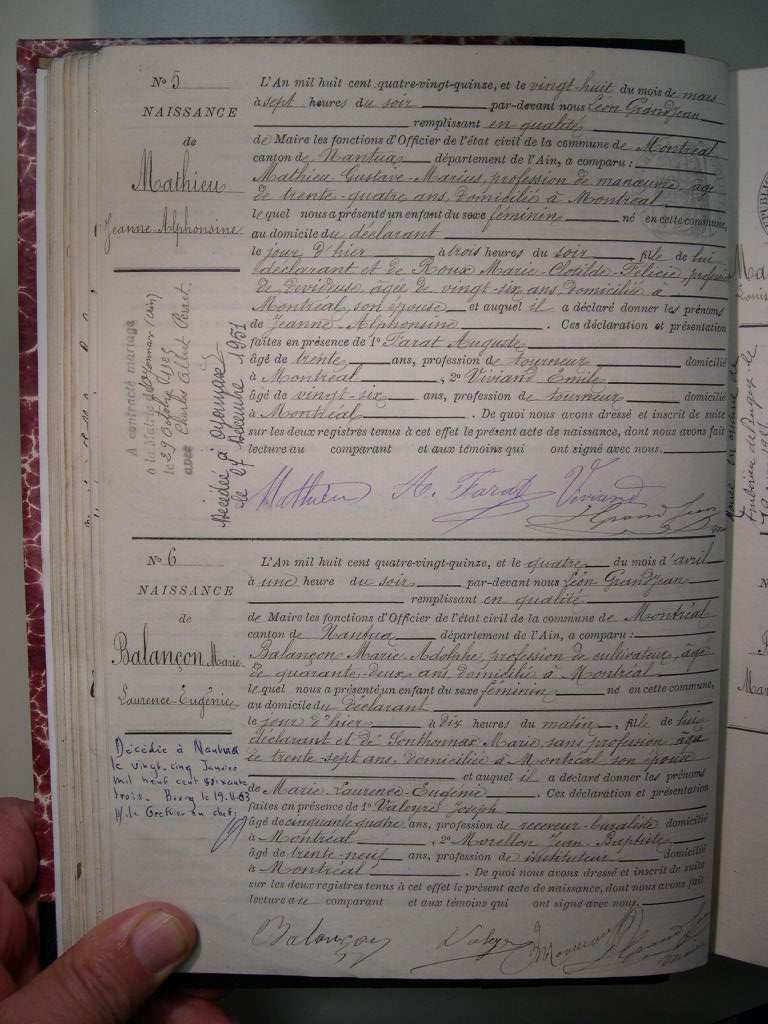 No 5
NAISSANCE
de
Mathieu
Jeanne Alphonsine
A contracté mariage
à la Mairie de Oyonnax (Ain)
le 29 Octobre
avec Charles Albert
Décédée à Oyonnax
le 27 Décembre 1951
L'An mil huit cent quatre-vingt-quinze, et le vingt huit du mois de mars
à sept heures du soir par-devant nous Léon Grandjean
remplissant en qualité
de Maire les fonctions d'Officier de l'état civil de la commune de Montréal
canton de Nantua département de l'Ain, a comparu :
Mathieu Gustave Marius, profession de manœuvre, âgé
de trente-quatre ans, domicilié à Montréal
lequel nous a présenté un enfant du sexe féminin né en cette commune,
au domicile du déclarant
le jour d'hier à trois heures du soir, fille de lui
déclarant et de Roux Marie-Clotilde-Félicie, profession
de dévideuse, âgée de vingt-six ans, domiciliée à
Montréal, son épouse et auquel il a déclaré donner les prénoms
de Jeanne Alphonsine. Ces déclaration et présentation
faites en présence de 1° Farat Auguste
âgé de trente ans, profession de tourneur domicilié
à Montréal, 2° Viviand Emile
âgé de vingt-six ans, profession de tourneur domicilié
à Montréal. De quoi nous avons dressé et inscrit de suite
sur les deux registres tenus à cet effet le présent acte de naissance, dont nous avons fait
lecture au comparant et aux témoins qui ont signé avec nous.
Mathieu A. Farat Viviand
L Grandjean
No 6
NAISSANCE
de
Balançon Marie
Laurence Eugénie
Décédée à Nantua
le vingt cinq Janvier
mil neuf cent soixante
trois. Bourg le 19.II.63
le Greffier en chef:
L'An mil huit cent quatre-vingt-quinze, et le quatre du mois d'avril
à une heure du soir par-devant nous Léon Grandjean
remplissant en qualité
de Maire les fonctions d'Officier de l'état civil de la commune de Montréal
canton de Nantua département de l'Ain, a comparu :
Balançon Marie Adolphe, profession de cultivateur, âgé
de quarante-deux ans, domicilié à Montréal
lequel nous a présenté un enfant du sexe féminin né en cette commune,
au domicile du déclarant
le jour d'hier à dix heures du matin, fille de lui
déclarant et de Sonthonnax Marie, sans profession, âgée
de trente sept ans, domiciliée à Montréal, son épouse
et auquel il a déclaré donner les prénoms
de Marie Laurence Eugénie. Ces déclaration et présentation
faites en présence de 1° Valeyre Joseph
âgé de cinquante quatre ans, profession de receveur-buraliste domicilié
à Montréal, 2° Morellon Jean-Baptiste
âgé de trente-neuf ans, profession de instituteur domicilié
à Montréal. De quoi nous avons dressé et inscrit de suite
sur les deux registres tenus à cet effet le présent acte de naissance, dont nous avons fait
lecture au comparant et aux témoins qui ont signé avec nous.
Balançon